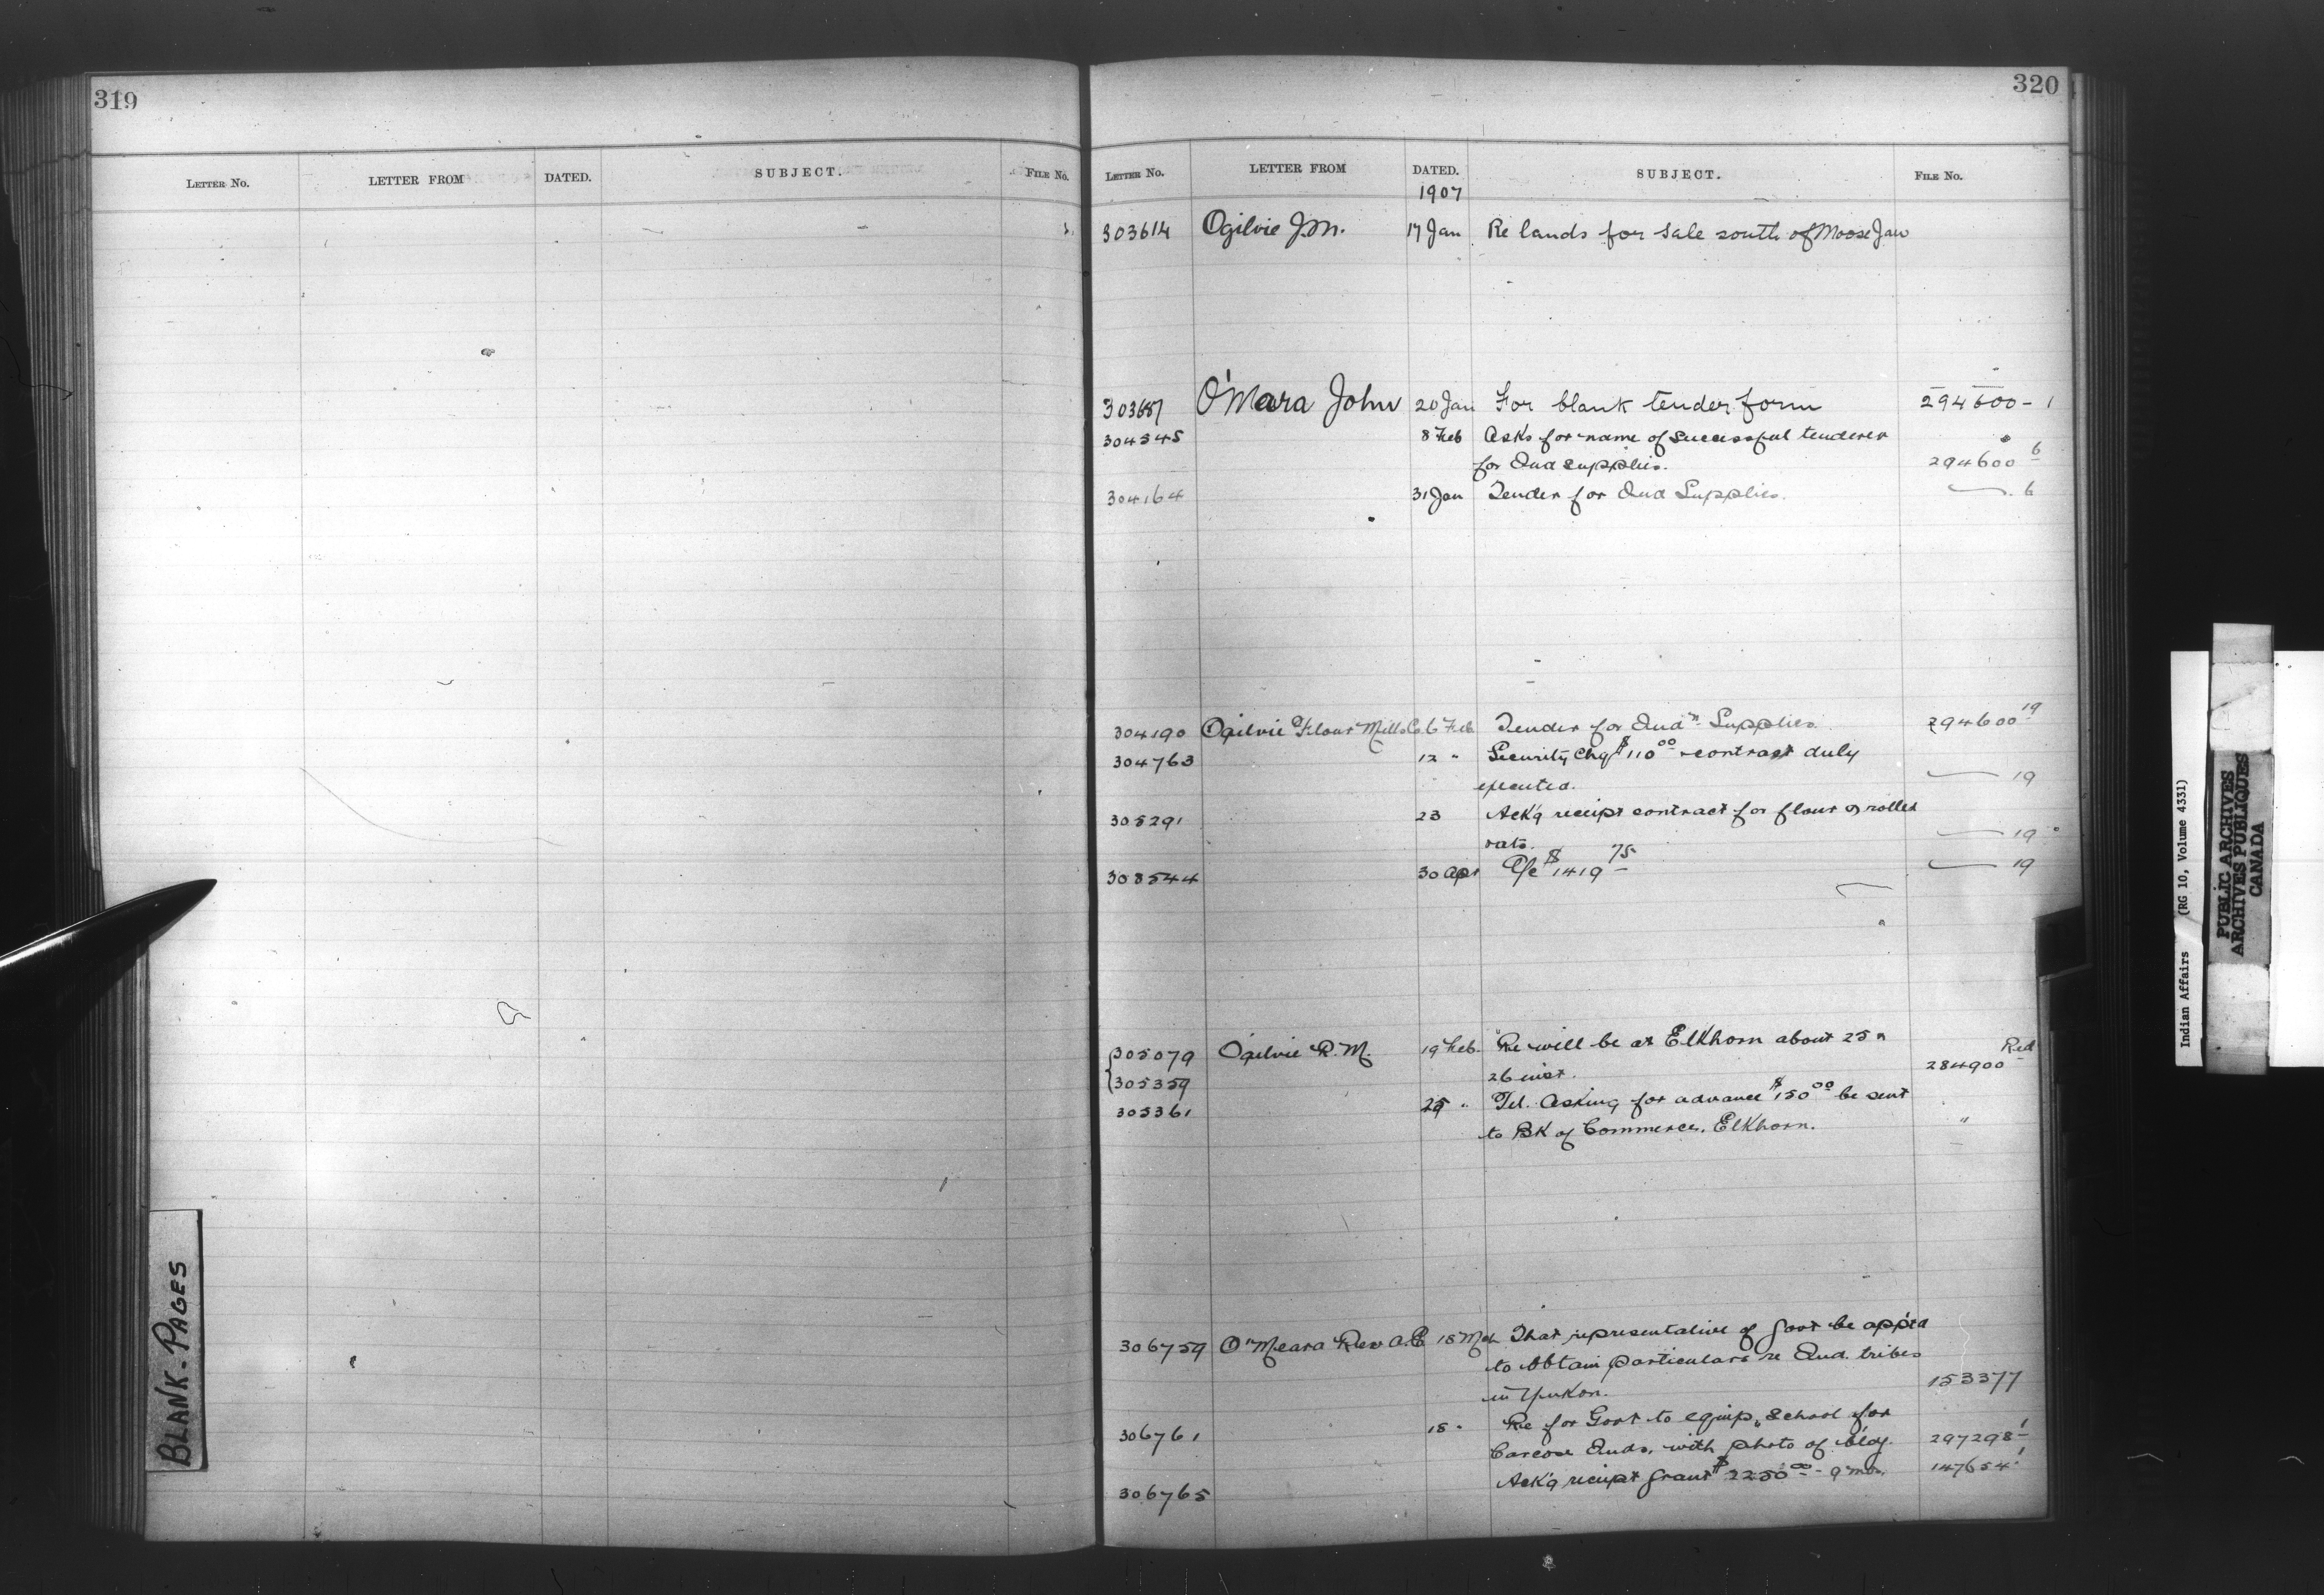 319
LETTER No. LETTER FROM DATED. SUBJECT. FILE No.
BLANK-PAGES
320
LETTER No. LETTER FROM DATED. SUBJECT. FILE No.
1907
303614 Ogilvie J.M. 17 Jan Re lands for sale south of Moose Jaw
303687 O'Mara John 20 Jan For blank tender form 294600-1
304545 8 Feb Asks for name of successful tenderer
for Ind supplies. 294600 6
304164 31 Jan Tender for Ind Supplies. — 6
304190 Ogilvie Flour Mills Co 6 Feb Tender for Indn Supplies. 294600 19
304763 12 " Security Chq $110.00 contract duly
executed. — 19
305291 23 Ack'g receipt contract for flour & rolled
oats. — 19
308544 30 Apr A/c $1419 75 — 19
305079 Ogilvie R.M. 19 Feb. Re will be at Elkhorn about 25 or
305359 26 inst. Red 284900
305361 25 " Tel. Asking for advance $150 00 be sent
to BK of Commerce, Elkhorn. "
306759 O'Meara Rev A.E 18 Mch That representative of Govt be app'td
to obtain particulars re Ind. tribes
in Yukon. 153377
306761 18 " Re for Govt to equip school for
Carcose Inds. with photo of bldg. 297298-1
306765 Ack'g receipt grant $2250 00 - 9 mos. 147654 1
Indian Affairs (RG 10, Volume 4331)
PUBLIC ARCHIVES
ARCHIVES PUBLIQUES
CANADA